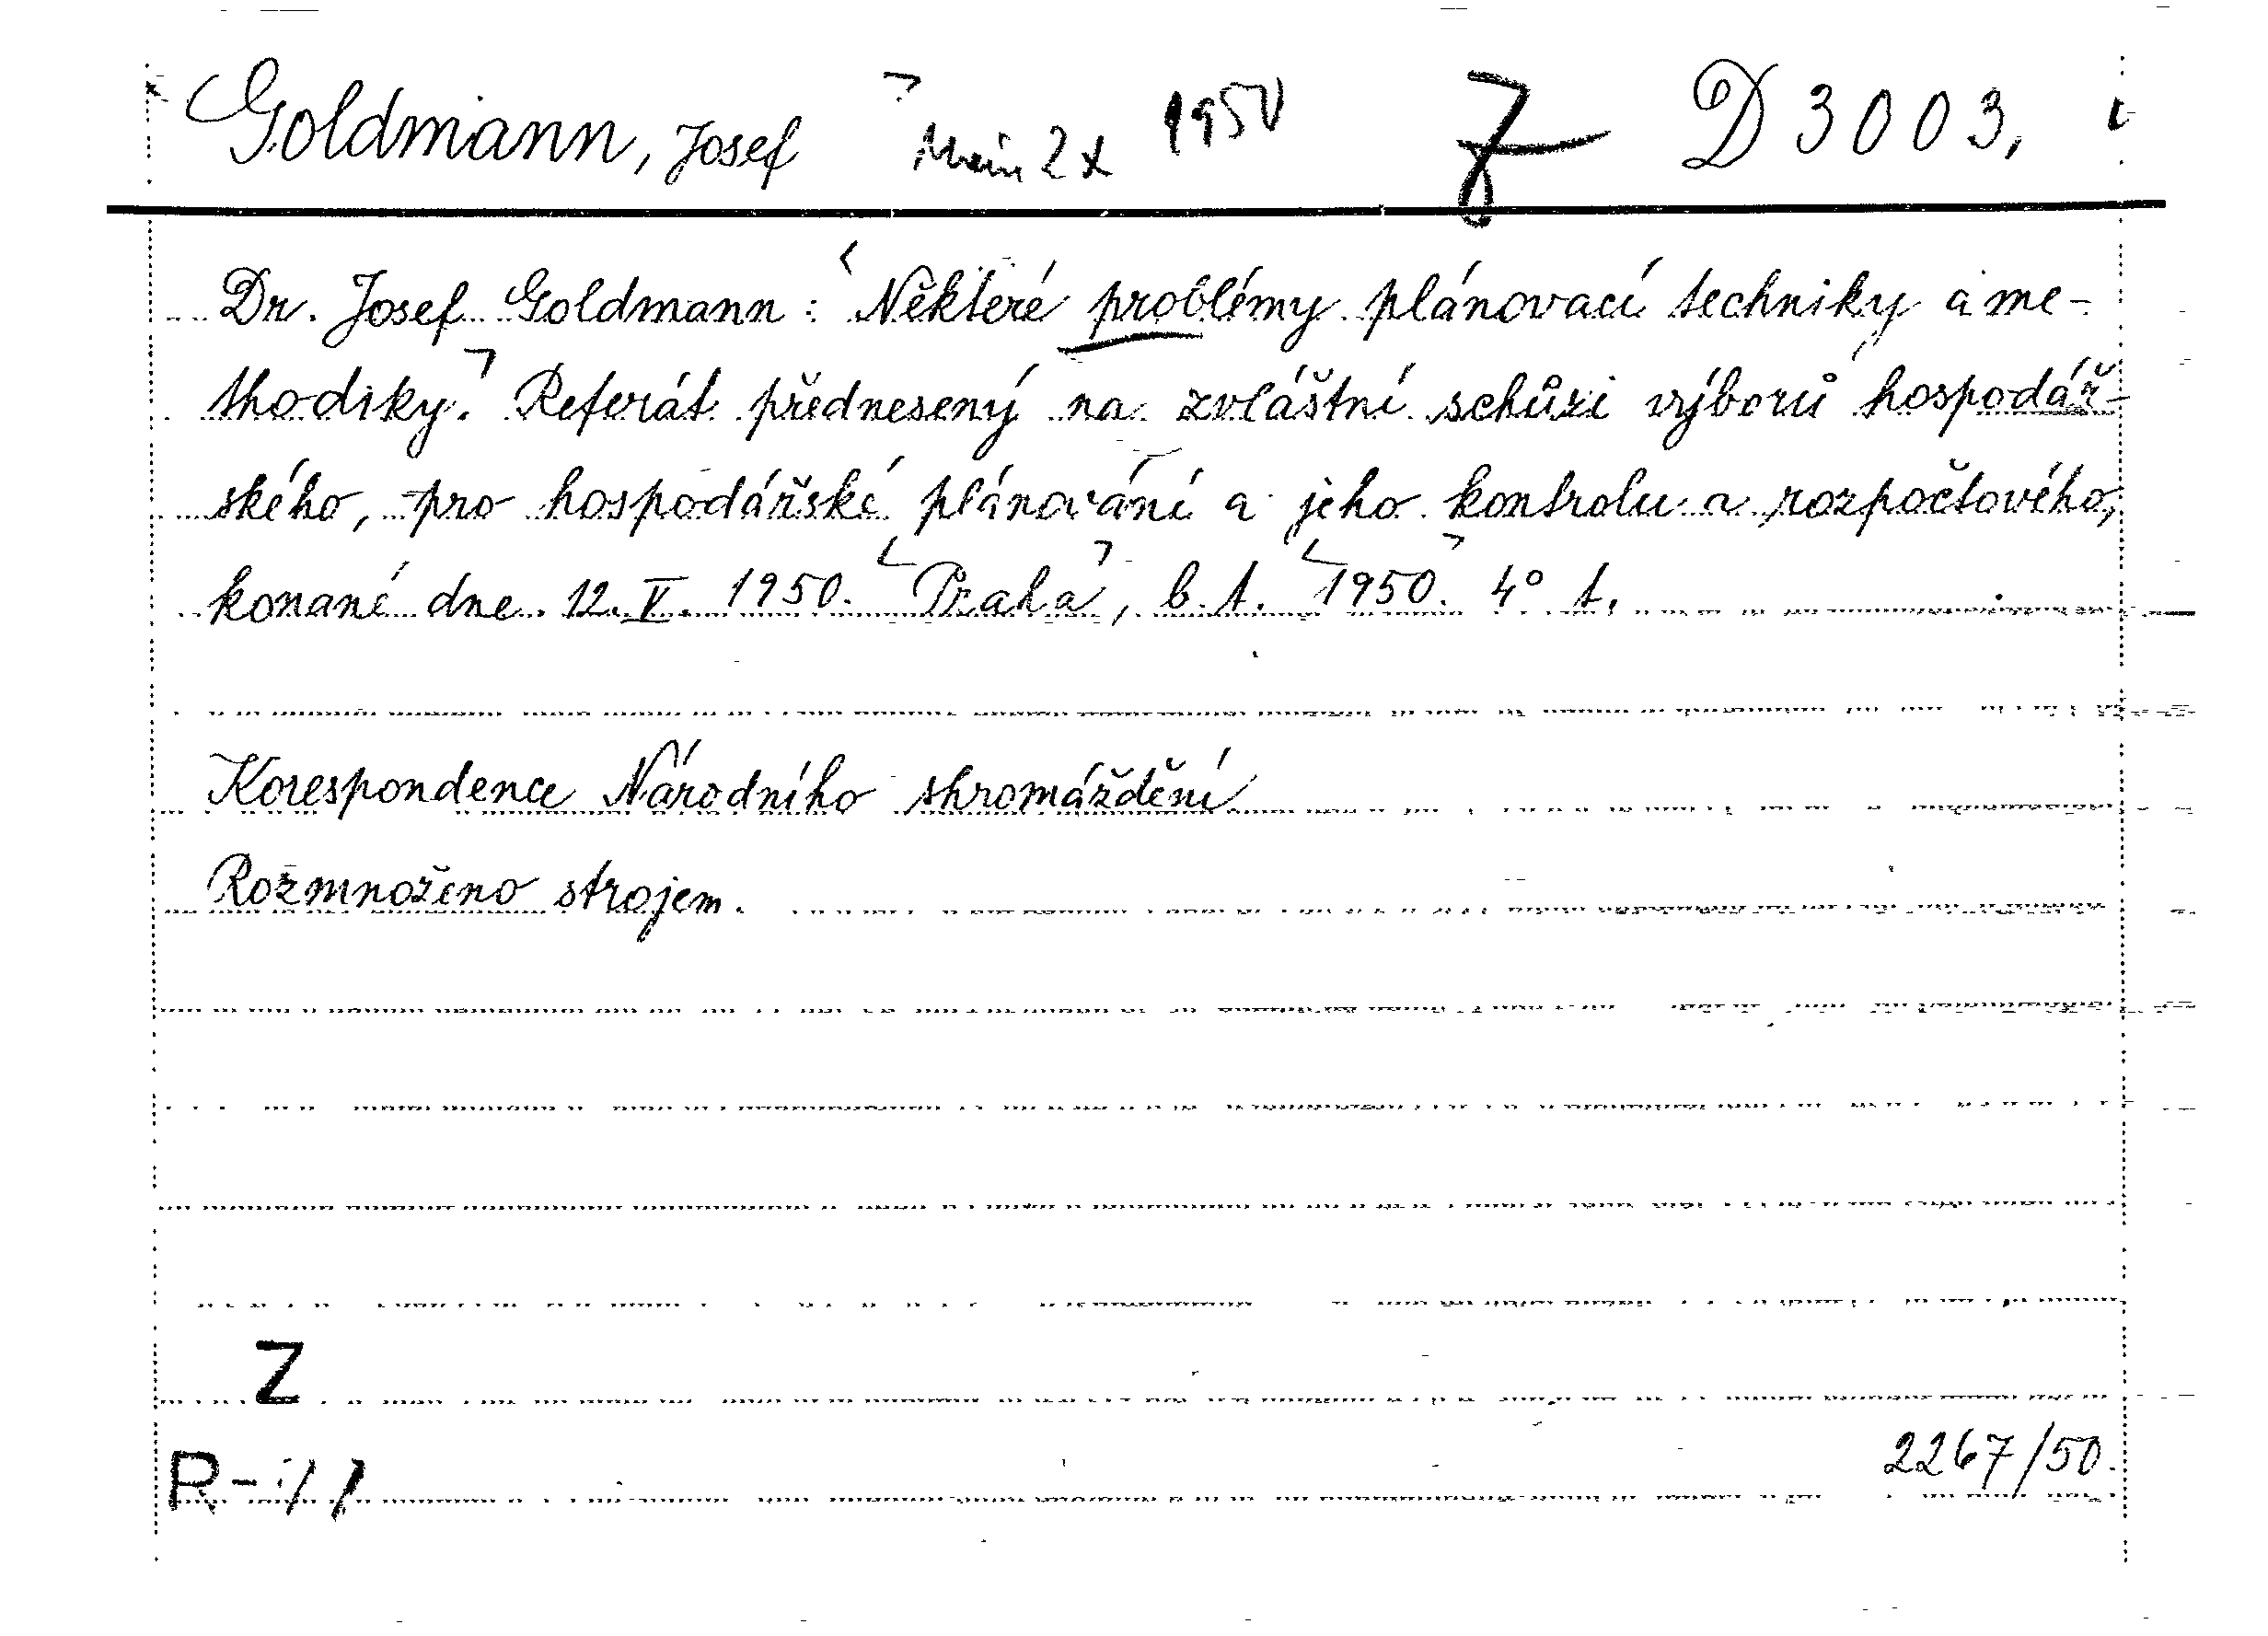 Goldmann, Josef 2x 1950 D 3003,
Dr. Josef Goldmann: Některé problémy plánovací techniky a me-
thodiky. Referát přednesený na zvláštní schůzi výborů hospodář-
ského, pro hospodářské plánování a jeho kontrolu a rozpočtového,
konané dne 12. V. 1950. Praha, b. t. 1950. 4° t.
Korespondence Národního shromáždění
Rozmnoženo strojem.
Z
R-
2267/50